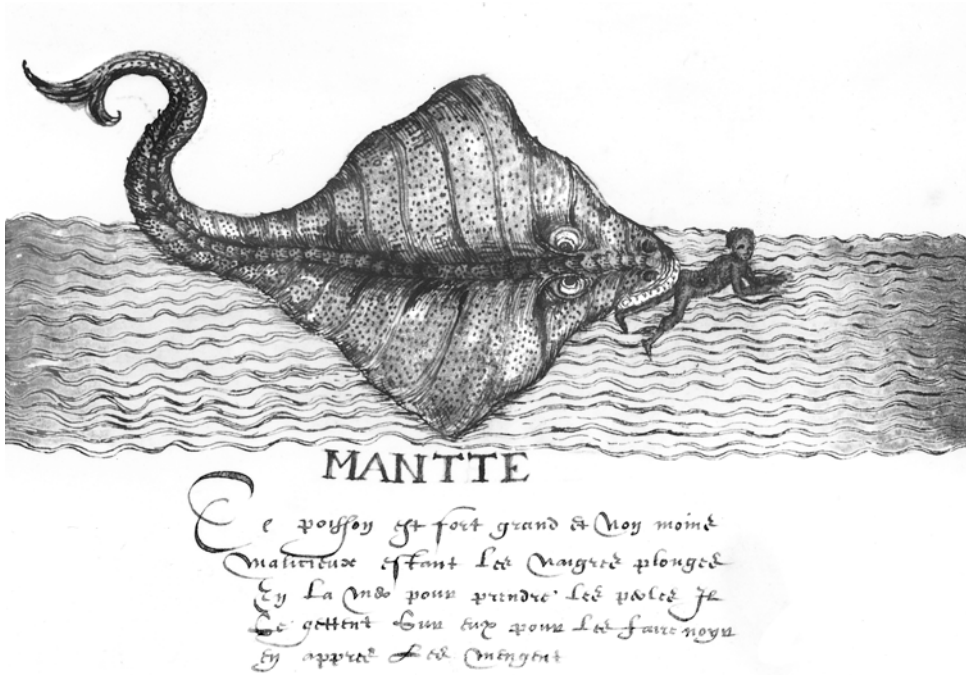 MANTTE
Ce poisson est fort grand et non moins
malicieux estant les naigres plonges
en la mer pour prendre les perles Il
se gettent sur eux pour les faire noyer
en appres les mengent